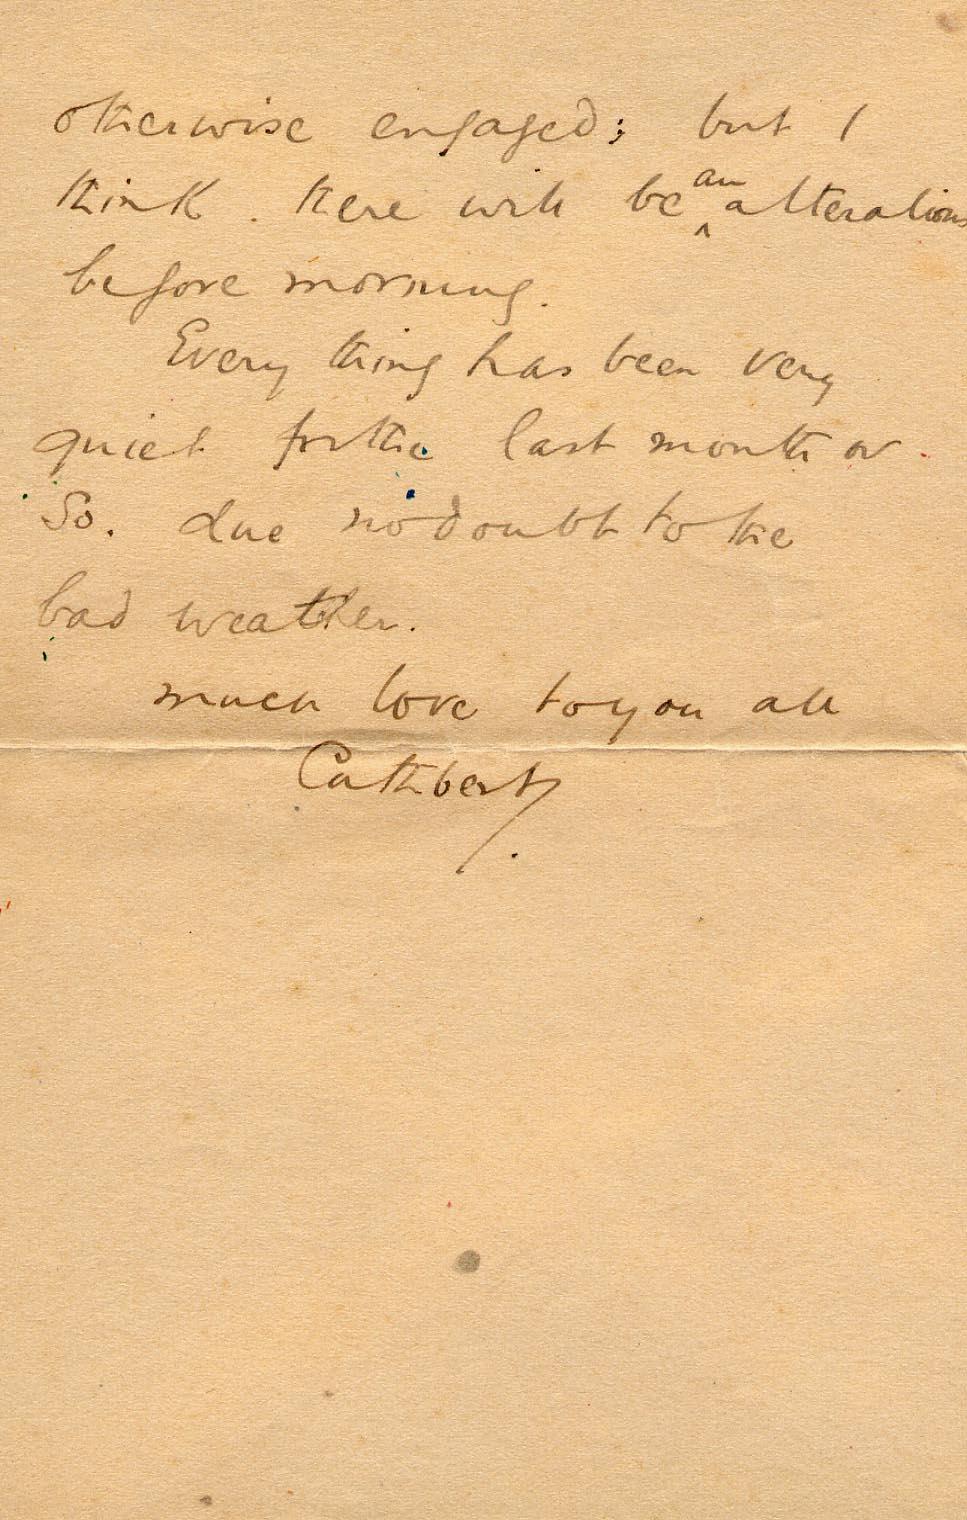 otherwise engaged; but I
think . there will be ^an alterations
before morning.
Every thing has been very
quiet for the last month or
So. due no doubt to the
bad weather.
much love to you all
Cuthbert/.